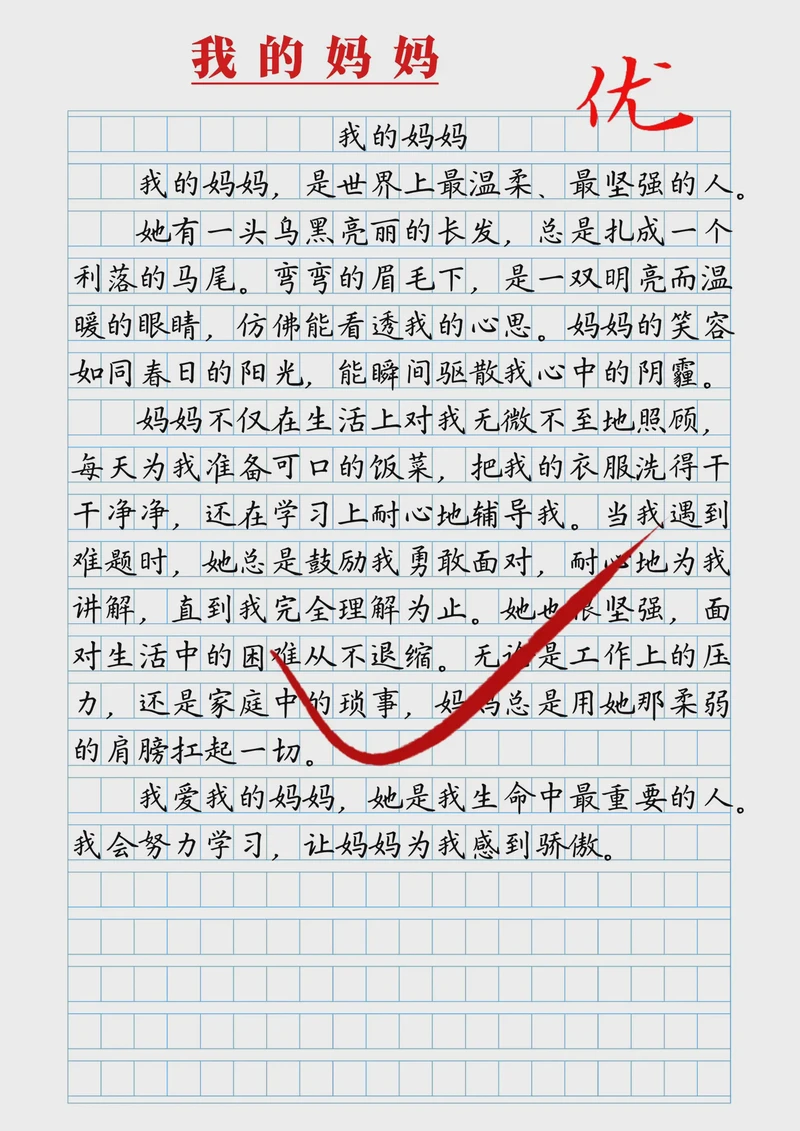 我的妈妈
优
我的妈妈
我的妈妈，是世界上最温柔、最坚强的人。
她有一头乌黑亮丽的长发，总是扎成一个
利落的马尾。弯弯的眉毛下，是一双明亮而温
暖的眼睛，仿佛能看透我的心思。妈妈的笑容
如同春日的阳光，能瞬间驱散我心中的阴霾。
妈妈不仅在生活上对我无微不至地照顾，
每天为我准备可口的饭菜，把我的衣服洗得干
干净净，还在学习上耐心地辅导我。当我遇到
难题时，她总是鼓励我勇敢面对，耐心地为我
讲解，直到我完全理解为止。她也很坚强，面
对生活中的困难从不退缩。无论是工作上的压
力，还是家庭中的琐事，妈妈总是用她那柔弱
的肩膀扛起一切。
我爱我的妈妈，她是我生命中最重要的人。
我会努力学习，让妈妈为我感到骄傲。